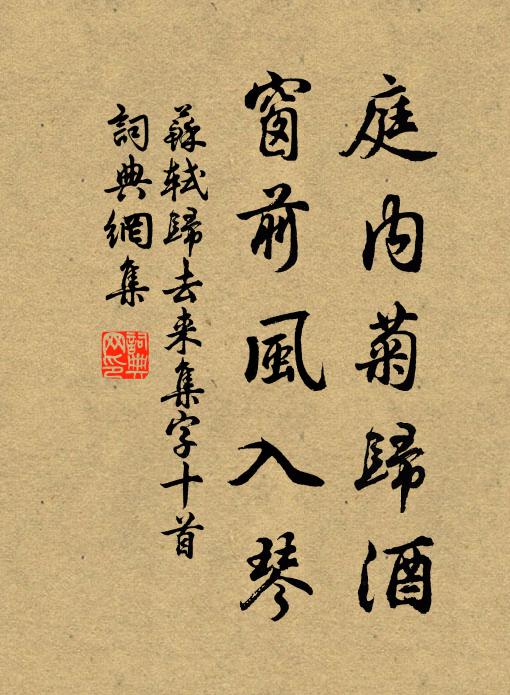 庭内菊歸酒
窗前風入琴
蘇軾歸去来集字十首
詞典網集
詞典網印